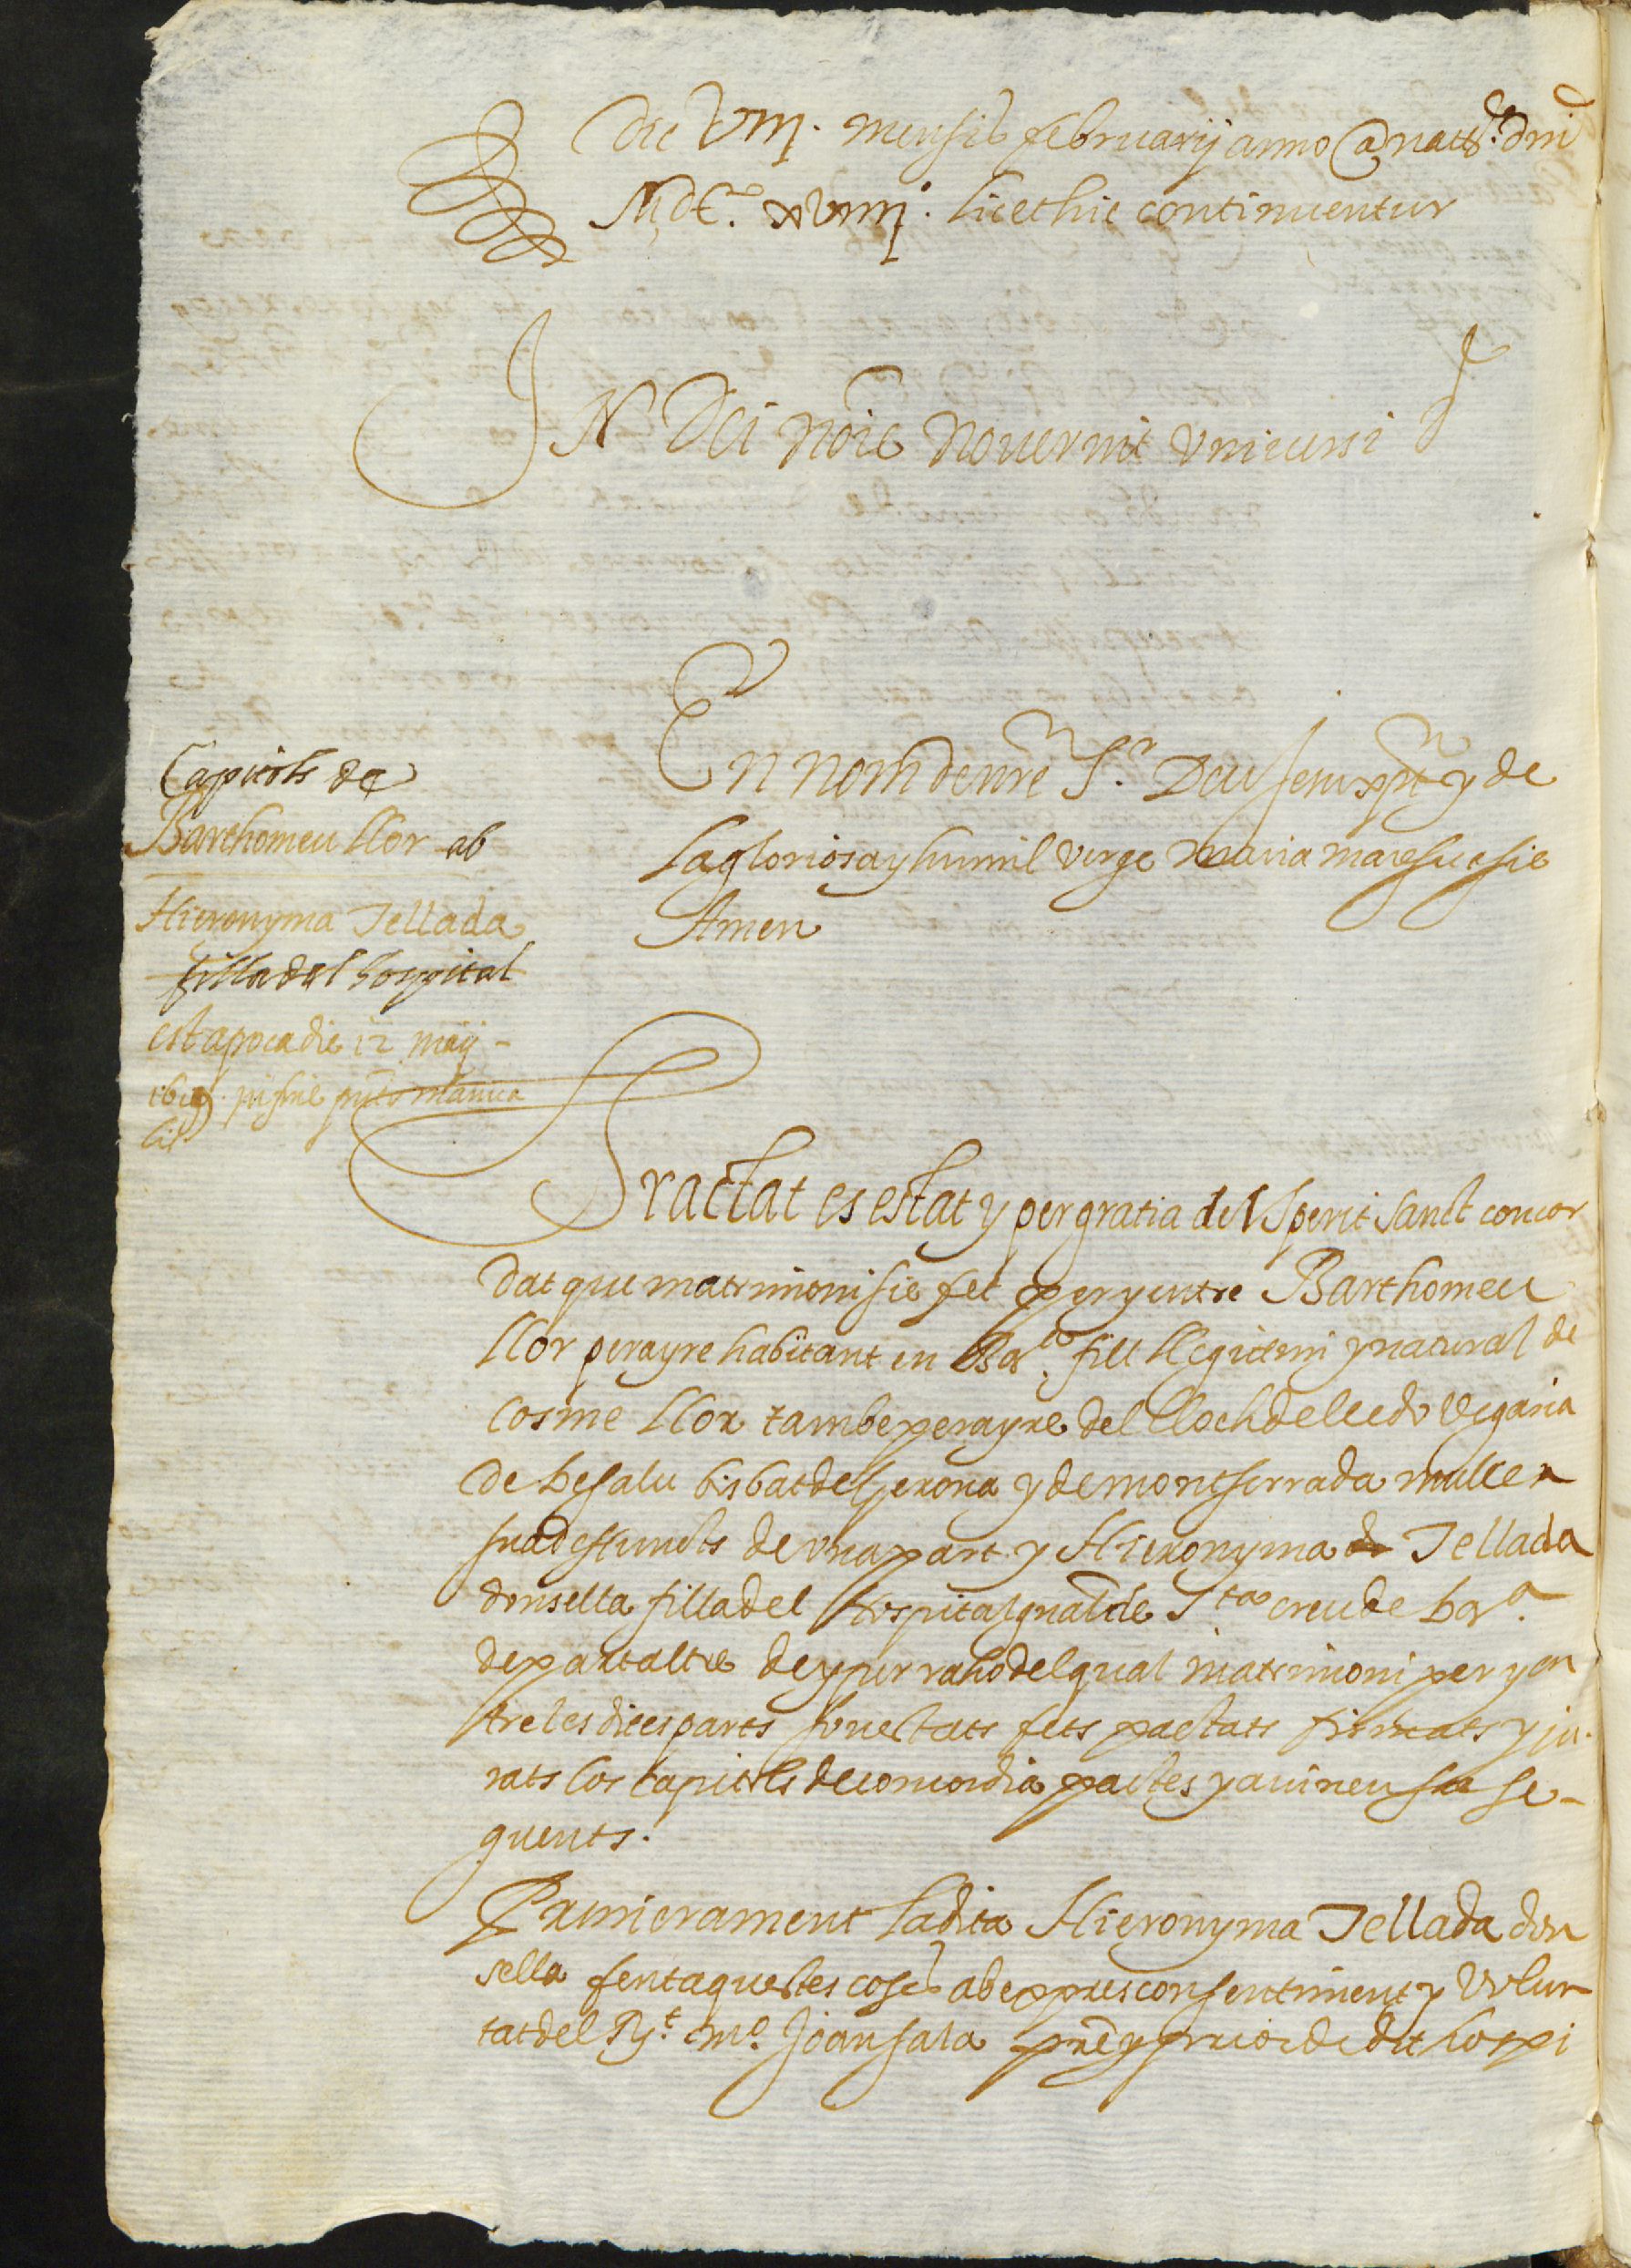 Die VIIIJ. mensis februarij anno a natte. dni
MDC. XVIIIJ. licet hic continuentur
IN Dei noie noverint universi
En nom de nre Sr. Deu Jesu xpt y de
la gloriosa y humil verge maria mare sue sie
Amen
Capitols de
Barthomeu llor ab
Hieronyma Tellada
filla del hospital
est apoca die 12 maij
Tractat es estat y per gratia del Sperit sanct concor
dat que matrimoni sie fet per y entre Barthomeu
llor perayre habitant en Bara. fill llegitim y natural de
Cosme llor tambe perayre del lloch de lledo vegaria
de besalu bisbat de Gerona y de montserrada muller
sua defuncts de una part y Hieronyma de Tellada
donsella filla del Hospital gnal de Sta creu de bara.
de part altre de y per raho del qual matrimoni per y en
tre les dites parts son estats fets pactats firmats y ju-
rats los capitols de concordia pactes y avinensa se-
guents.
Primerament la dita Hieronyma Tellada don
sella fent aquestes coses ab expres consentiment y volun
tat del Rt. mo. Joan sala pre y prior de dit hospi